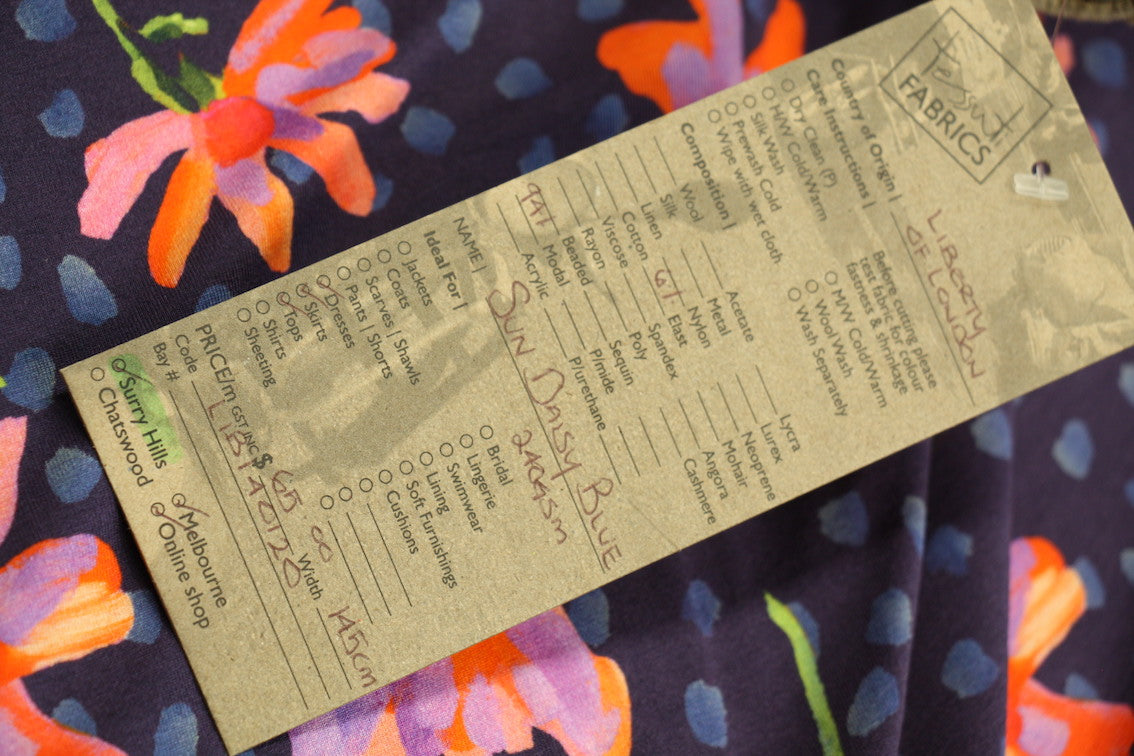 Tessuti
FABRICS
Country of Origin | LIBERTY
OF LONDON
Care Instructions |
Before cutting please
test fabric for colour
fastness & shrinkage
Dry Clean (P)
H/W Cold/Warm
Silk Wash
Prewash Cold
Wipe with wet cloth
M/W Cold/Warm
Wool Wash
Wash Separately
Composition |
Wool
Silk
Linen
Cotton
Viscose
Rayon
Beaded
94% Modal
Acrylic
Acetate
Metal
Nylon
6% Elast
Spandex
Poly
Sequin
P/mide
P/urethane
Lycra
Lurex
Neoprene
Mohair
Angora
Cashmere
NAME | SUN DAISY BLUE
240gsm
Ideal For |
Jackets
Coats
Scarves | Shawls
Pants | Shorts
Dresses
Skirts
Tops
Shirts
Sheeting
Bridal
Lingerie
Swimwear
Lining
Soft Furnishings
Cushions
PRICE/m GST INC $ 65 00 Width 145cm
Code LIB140120
Bay #
Surry Hills
Chatswood
Melbourne
Online shop